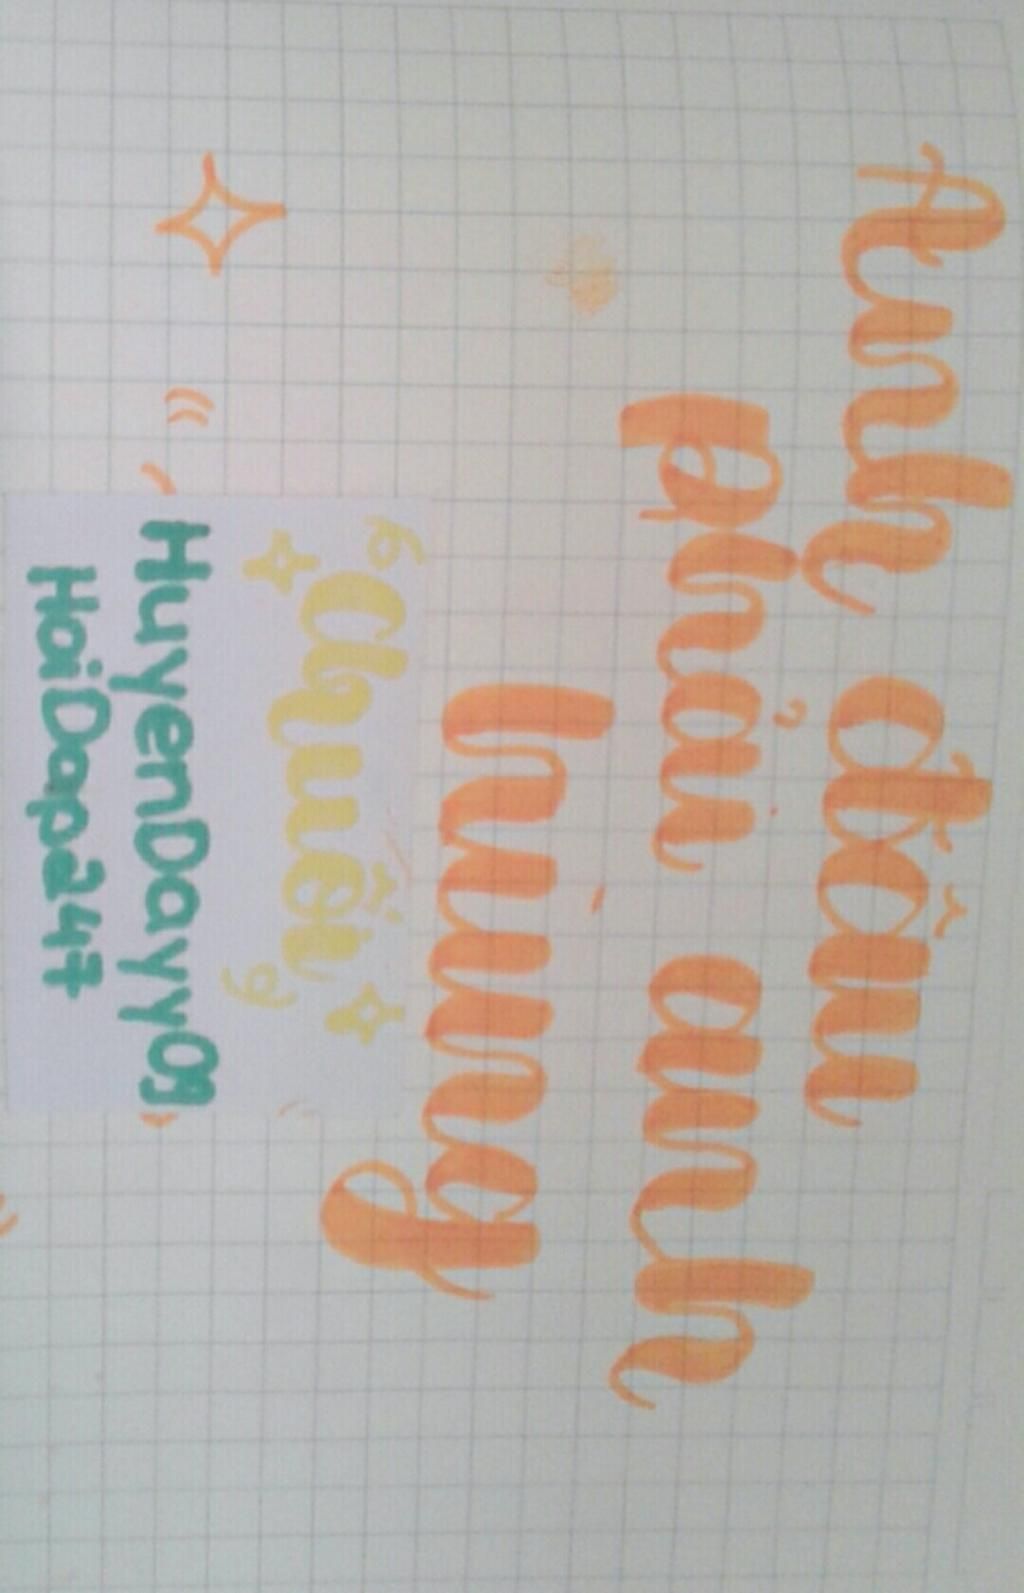 Anh đâu
phải anh
hùng
Chuối
HuyenDayy09
HoiDap247